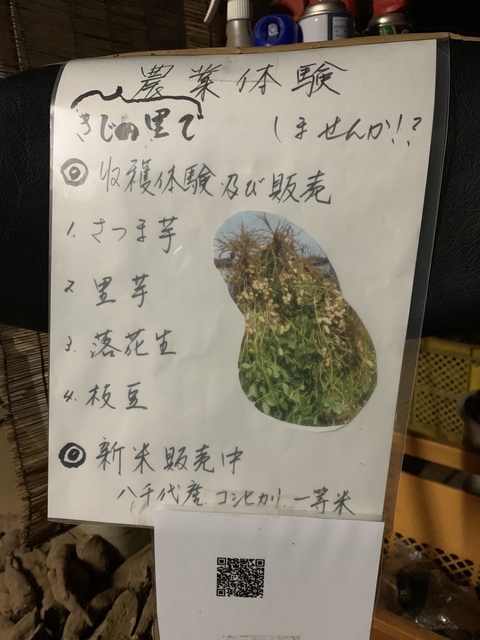 農業体験
きじの里で しませんか!!?
◎ 収穫体験及び販売
1. さつま芋
2. 里芋
3. 落花生
4. 枝豆
◎ 新米販売中
八千代産 コシヒカリ 一等米